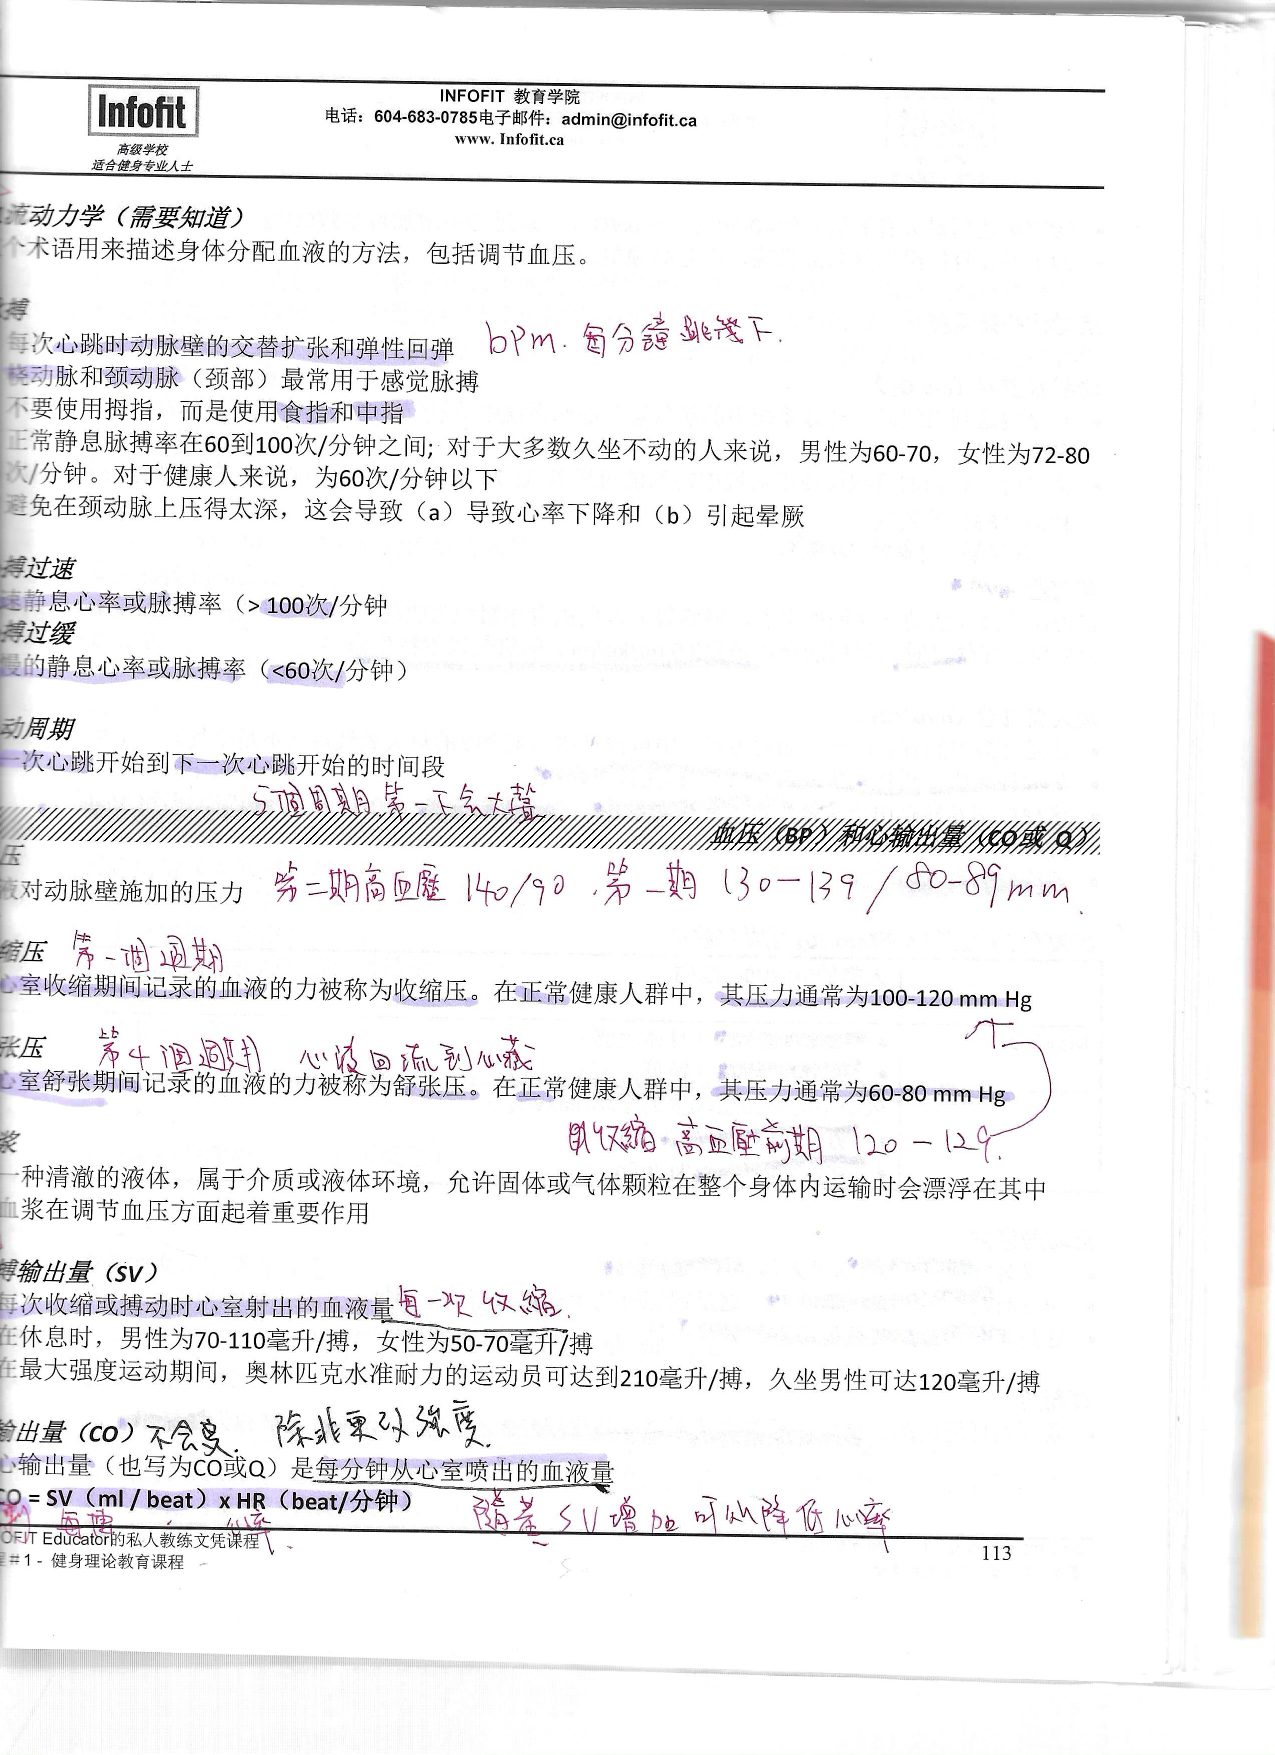 Infofit
高级学校
适合健身专业人士
INFOFIT 教育学院
电话：604-683-0785电子邮件：admin@infofit.ca
www. Infofit.ca
流动力学（需要知道）
个术语用来描述身体分配血液的方法，包括调节血压。
搏
每次心跳时动脉壁的交替扩张和弹性回弹 bpm. 每分鐘跳幾下.
桡动脉和颈动脉（颈部）最常用于感觉脉搏
不要使用拇指，而是使用食指和中指
正常静息脉搏率在60到100次/分钟之间; 对于大多数久坐不动的人来说，男性为60-70，女性为72-80
次/分钟。对于健康人来说，为60次/分钟以下
避免在颈动脉上压得太深，这会导致（a）导致心率下降和（b）引起晕厥
搏过速
速静息心率或脉搏率（> 100次/分钟
搏过缓
慢的静息心率或脉搏率（<60次/分钟）
动周期
一次心跳开始到下一次心跳开始的时间段
5個周期 第一下会大聲
血压（BP）和心输出量（CO或 Q）
压
液对动脉壁施加的压力 第二期高血壓 140/90 . 第一期 130-139 / 80-89mm.
缩压 第一個週期
心室收缩期间记录的血液的力被称为收缩压。在正常健康人群中，其压力通常为100-120 mm Hg
张压 第4個週期 回流到心藏
心室舒张期间记录的血液的力被称为舒张压。在正常健康人群中，其压力通常为60-80 mm Hg
收縮 高血壓前期 120-129.
浆
一种清澈的液体，属于介质或液体环境，允许固体或气体颗粒在整个身体内运输时会漂浮在其中
血浆在调节血压方面起着重要作用
搏输出量（SV）
每次收缩或搏动时心室射出的血液量 每一次收縮.
在休息时，男性为70-110毫升/搏，女性为50-70毫升/搏
在最大强度运动期间，奥林匹克水准耐力的运动员可达到210毫升/搏，久坐男性可达120毫升/搏
输出量（CO）不会变. 除非更改强度.
心输出量（也写为CO或Q）是每分钟从心室喷出的血液量
CO = SV（ml / beat）x HR（beat/分钟）
每搏 心率. 隨著 SV增加可以降低心率
OFIT Educator的私人教练文凭课程
程#1 - 健身理论教育课程
113